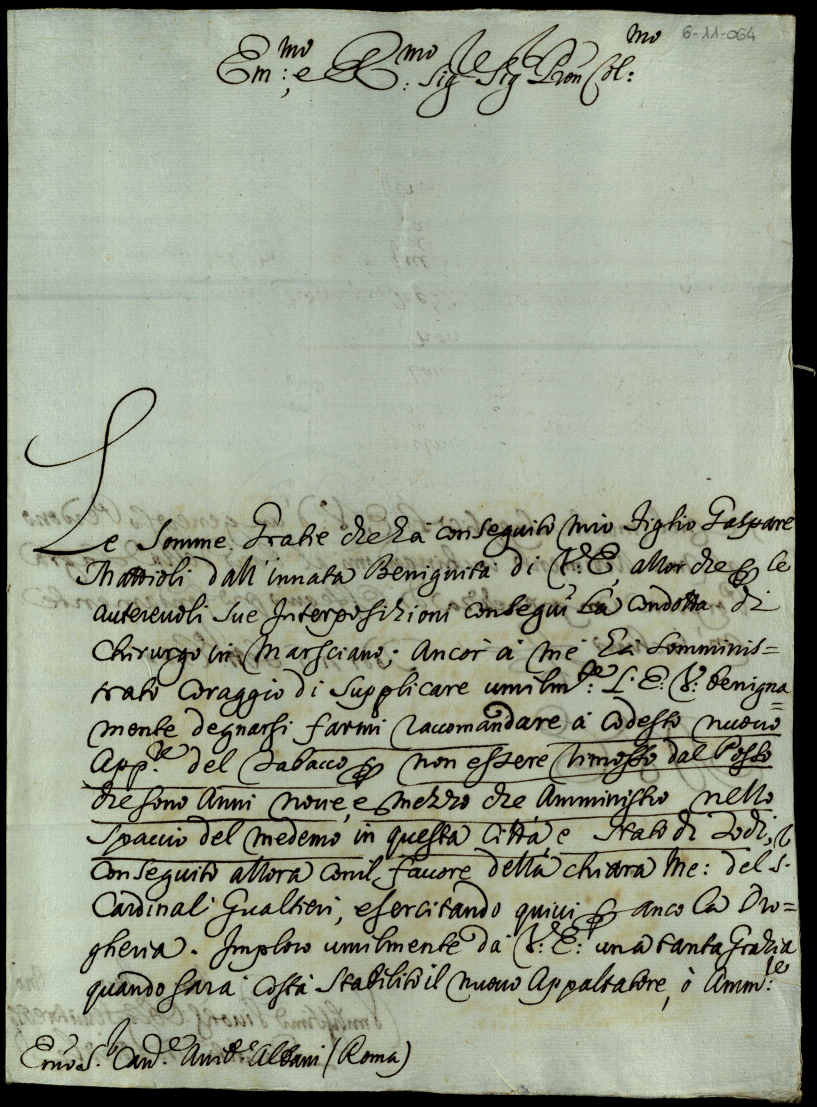 6-11-064
Em:mo e R:mo Sig.re Sig.re Pron Col:mo
Le somme Gratie che hà conseguito mio Figlio Gaspare
Mattioli dall'innata Benignità di V:E, allor che p le
autorevoli sue Interposizioni conseguì La Condotta di
Chirurgo in Marsciano; Ancor' à me hà somminis=
trato Coraggio di Supplicare umilm.te L:E:V: benigna=
mente degnarsi farmi raccomandare à codesto nuovo
App.re del Tabacco p non essere rimosso dal Posto
che sono Anni nove, e mezzo che Amministro nello
Spaccio del medemo in questa Città, e Stato di Todi,
Conseguito allora conil favore della chiara Me: del S.
Cardinali Gualtieri, esercitando quivi p anco La Dro=
gheria. Imploro umilmente da V:E: una tanta Grazia
quando sarà costà stabilito il nuovo Appaltatore, ò Amm:re
Emo S. Card.e Annib.e Albani (Roma)